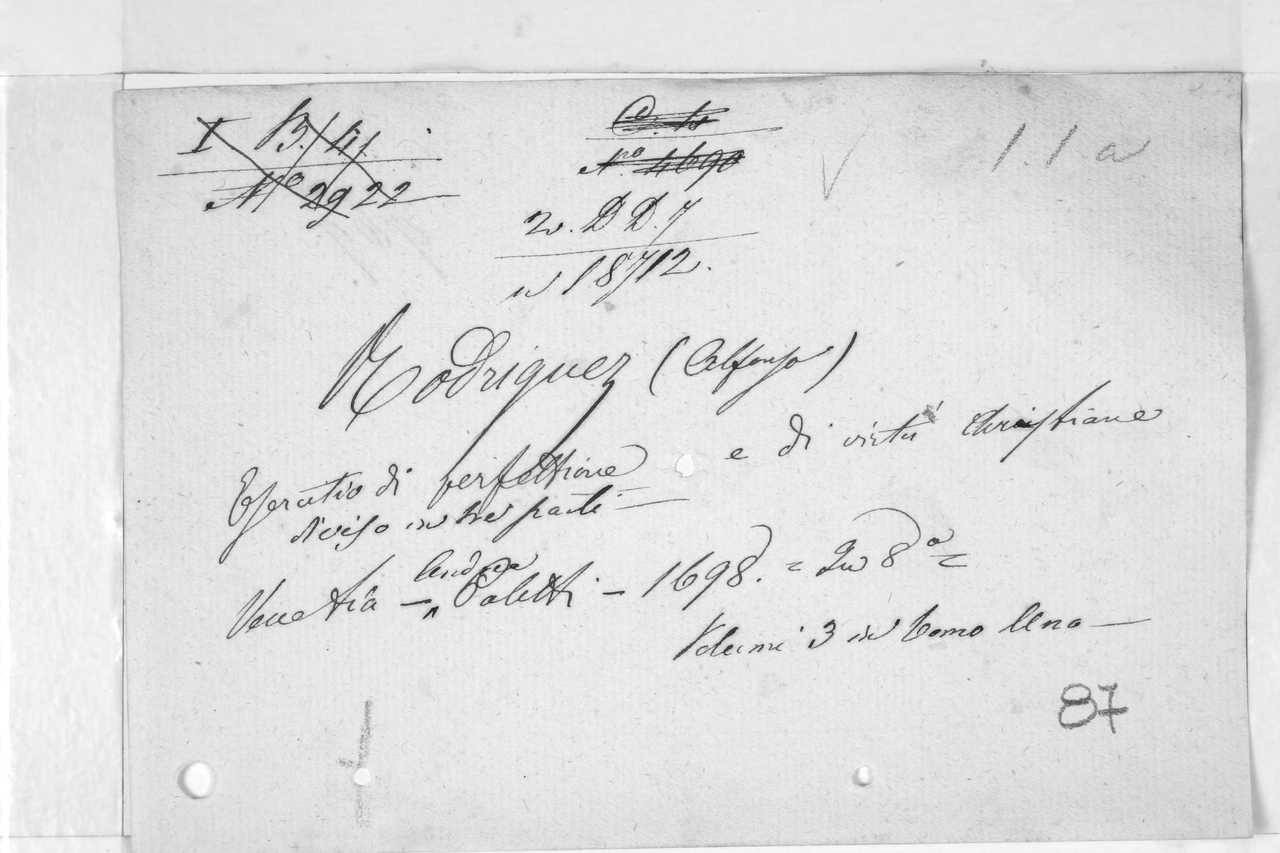 I B. 41.
N.º 2922
N.º 4690
1. 1. a
2. D D. 7
n 18712.
Rodriguez (Alfonso)
Esercitio di perfettione e di virtù christiane
diviso in tre parti —
Venetia — Andrea Poletti — 1698. = In 8º =
Volumi 3 in tomo Uno —
87